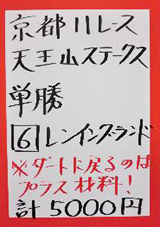 京都11レース
天王山ステークス
単勝
6 レイニングランド
※ダートに戻るのは
プラス材料!
計5000円